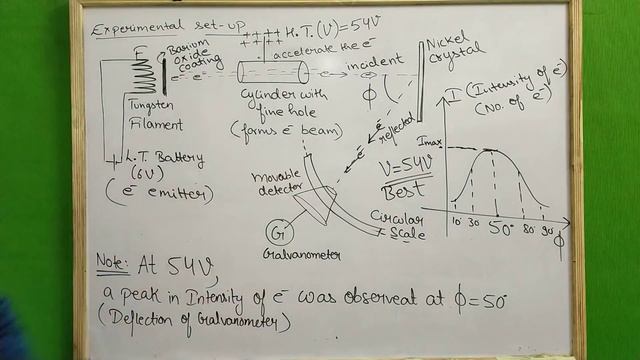 Experimental set-up
+ + + + H.T.(V)=54V
+ + + +
accelerate the e⁻
Nickel
crystal
F
Barium
oxide
coating
e⁻ e⁻
incident
ϕ
I (Intensity of e⁻)
(No. of e⁻)
Tungsten
Filament
Cylinder with
fine hole
(forms e⁻ beam)
e⁻
e⁻
reflected
Imax
L.T. Battery
(6V)
(e⁻ emitter)
movable
detector
V=54V
Best
G
Galvanometer
Circular
Scale
10° 30° 50° 80° 90° ϕ
Note: At 54V,
a peak in Intensity of e⁻ was observeat at ϕ=50°
(Deflection of Galvanometer)